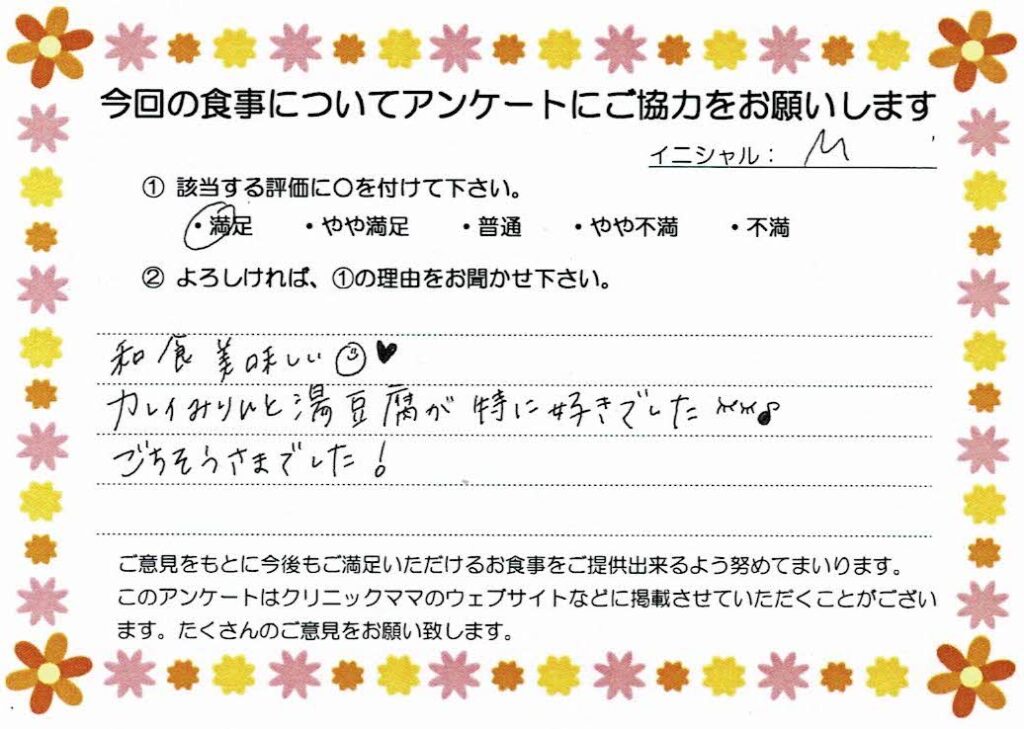 今回の食事についてアンケートにご協力をお願いします
イニシャル： M
① 該当する評価に〇を付けて下さい。
・満足 ・やや満足 ・普通 ・やや不満 ・不満
② よろしければ、①の理由をお聞かせ下さい。
和食美味しい☺♥
カレイみりんと湯豆腐が特に好きでした **♪
ごちそうさまでした！
ご意見をもとに今後もご満足いただけるお食事をご提供出来るよう努めてまいります。
このアンケートはクリニックママのウェブサイトなどに掲載させていただくことがござい
ます。たくさんのご意見をお願い致します。